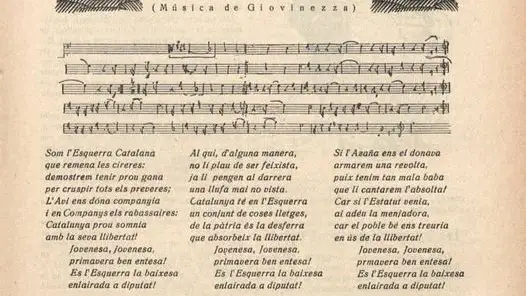 (Música de Giovinezza)
Som l'Esquerra Catalana
que remena les cireres:
demostrem tenir prou gana
per cruspir tots els preveres;
L'Avi ens dóna companyia
i en Companys els rabassaires:
Catalunya prou somnia
amb la seva llibertat!
Jovenesa, Jovenesa,
primavera ben entesa!
Es l'Esquerra la baixesa
enlairada a diputat!
Al qui, d'alguna manera,
no li plau de ser feixista,
ja li pengen al darrera
una llufa mai no vista.
Catalunya té en l'Esquerra
un conjunt de coses lletges,
de la pàtria és la desferra
que absorbeix la llibertat.
Jovenesa, Jovenesa,
primavera ben entesa!
Es l'Esquerra la baixesa
enlairada a diputat!
Si l'Azaña ens el donava
armarem una revolta,
puix tenim tan mala baba
que li cantarem l'absolta!
Car si l'Estatut venia,
al adéu la menjadora,
car el poble bé ens treuria
en ús de la llibertat.
Jovenesa, Jovenesa,
primavera ben entesa!
Es l'Esquerra la baixesa
enlairada a diputat!